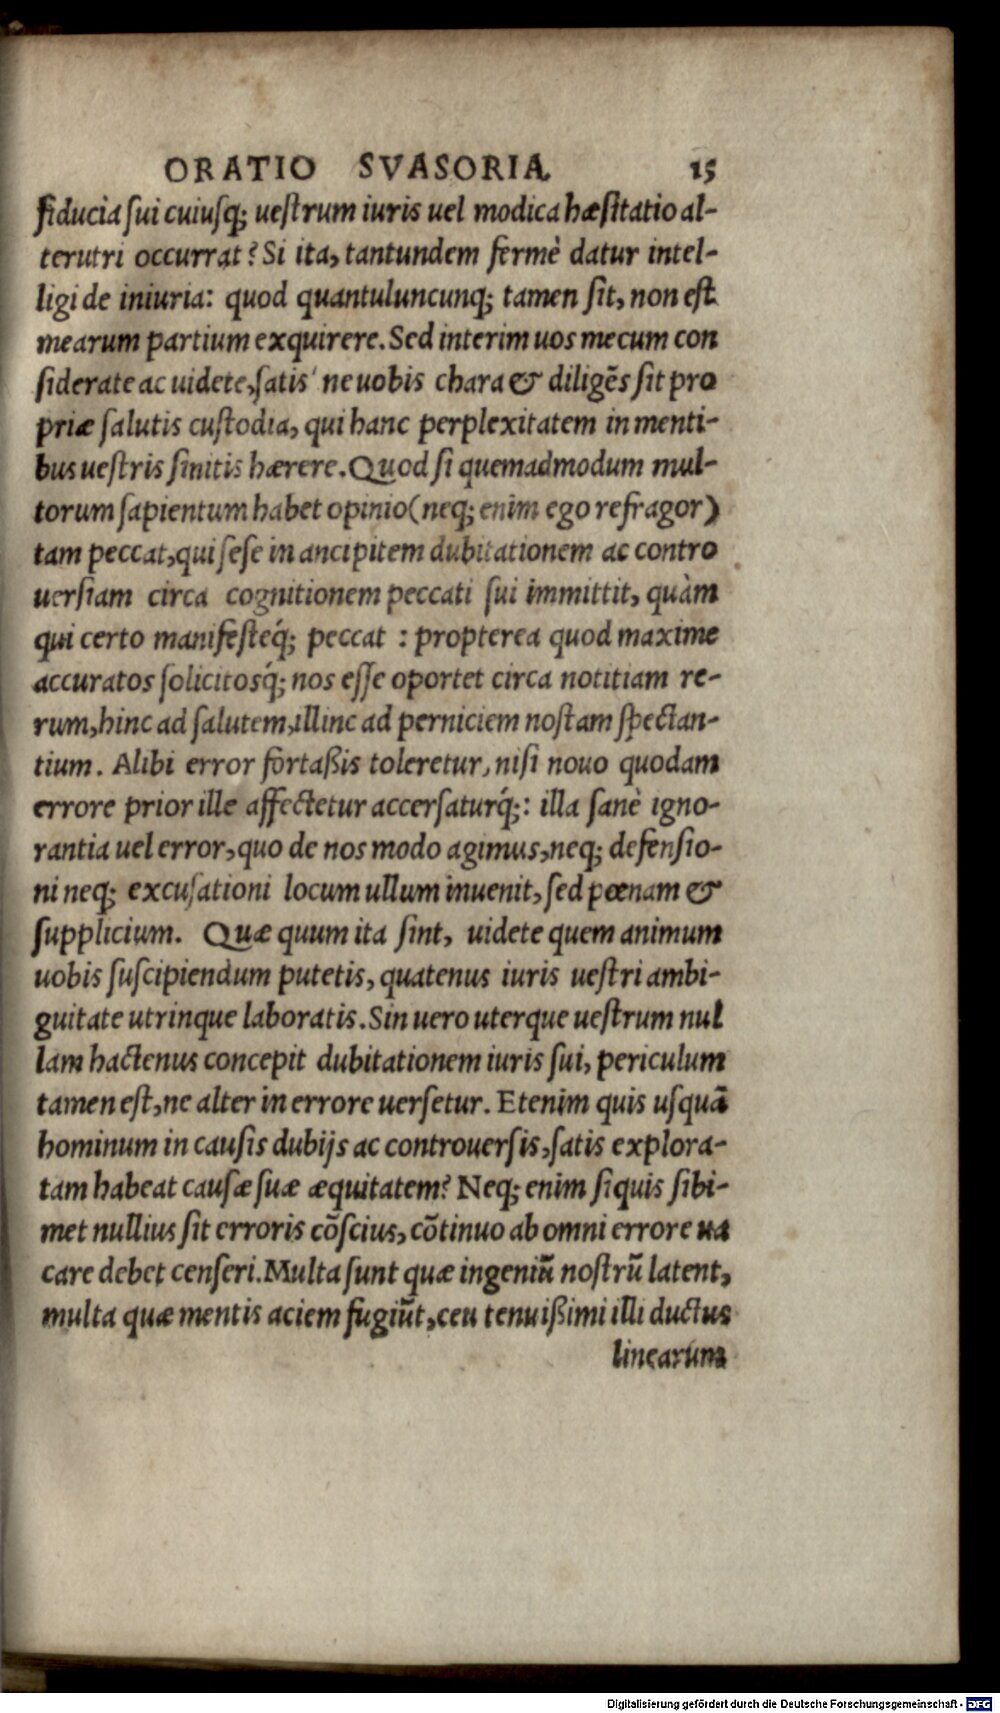 ORATIO SVASORIA 15
fiducia sui cuiusq; uestrum iuris uel modica hæsitatio al-
terutri occurrat? Si ita, tantundem fermè datur intel-
ligi de iniuria: quod quantuluncunq; tamen sit, non est
mearum partium exquirere. Sed interim uos mecum con
siderate ac uidete, satis' ne uobis chara & diligēs sit pro
priæ salutis custodia, qui hanc perplexitatem in menti-
bus uestris sinitis hærere. Quod si quemadmodum mul-
torum sapientum habet opinio (neq; enim ego refragor)
tam peccat, qui sese in ancipitem dubitationem ac contro
uersiam circa cognitionem peccati sui immittit, quàm
qui certo manifesteq́; peccat : propterea quod maxime
accuratos solicitosq́; nos esse oportet circa notitiam re-
rum, hinc ad salutem, illinc ad perniciem nostam spectan-
tium. Alibi error fortaßis toleretur, nisi nouo quodam
errore prior ille affectetur accersaturq́;: illa sanè igno-
rantia uel error, quo de nos modo agimus, neq; defensio-
ni neq; excusationi locum ullum inuenit, sed pœnam &
supplicium. Quæ quum ita sint, uidete quem animum
uobis suscipiendum putetis, quatenus iuris uestri ambi-
guitate utrinque laboratis. Sin uero uterque uestrum nul
lam hactenus concepit dubitationem iuris sui, periculum
tamen est, ne alter in errore uersetur. Etenim quis usquā
hominum in causis dubijs ac controuersis, satis explora-
tam habeat causæ suæ æquitatem? Neq; enim si quis sibi-
met nullius sit erroris cōscius, cōtinuo ab omni errore ua
care debet censeri. Multa sunt quæ ingeniū nostrū latent,
multa quæ mentis aciem fugiūt, ceu tenuißimi illi ductus
linearum
Digitalisierung gefördert durch die Deutsche Forschungsgemeinschaft - DFG